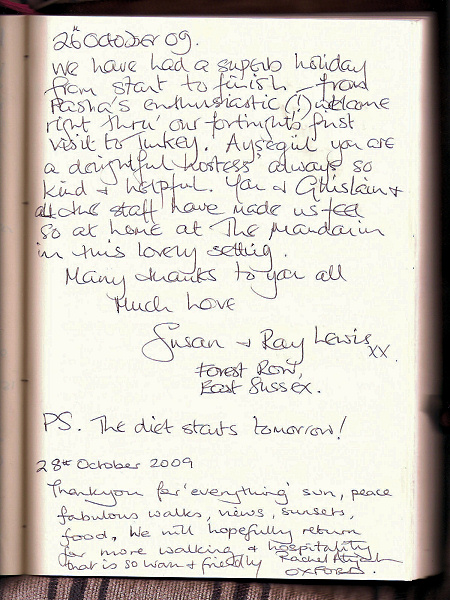 26th October 09.
We have had a superb holiday
from start to finish – from
Pasha's enthusiastic (!) welcome
right thru' our fortnight's first
visit to Turkey. Aysegül you are
a delightful hostess' always so
kind + helpful. You + Ghislain +
all the staff have made us feel
so at home at The Mandarin
in this lovely setting.
Many thanks to you all
Much Love
Susan + Ray Lewis xx.
Forest Row,
East Sussex.
PS. The diet starts tomorrow!
28th October 2009
Thankyou for 'everything' sun, peace
fabulous walks, views, sunsets,
food. We will hopefully return
for more walking + hospitality
that is so warm + friendly Rachel
OXFORD.